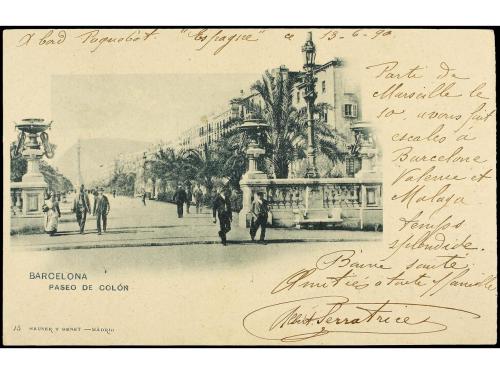 A bord Paquebot "Espagne" ce 13-6-90
Parti de
Marseille le
10, avons fait
escales à
Barcelone
Valence et
Malaga
temps
splendide.
Bonne santé
Amitiés à toute famille
Serratrice
BARCELONA
PASEO DE COLÓN
15 HAUSER Y MENET.—MADRID